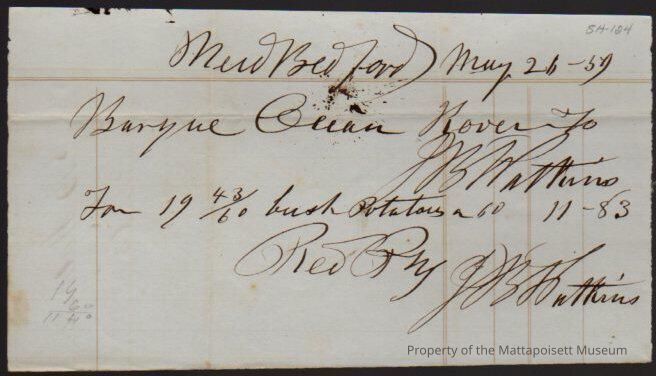 SH-184
New Bedford May 26-59
Barque Ocean Rover To
J B Watkins
For 19 43/60 bush Potatoes a 60 11-83
Recd Pay J B Watkins
19
60
11 40
Property of the Mattapoisett Museum